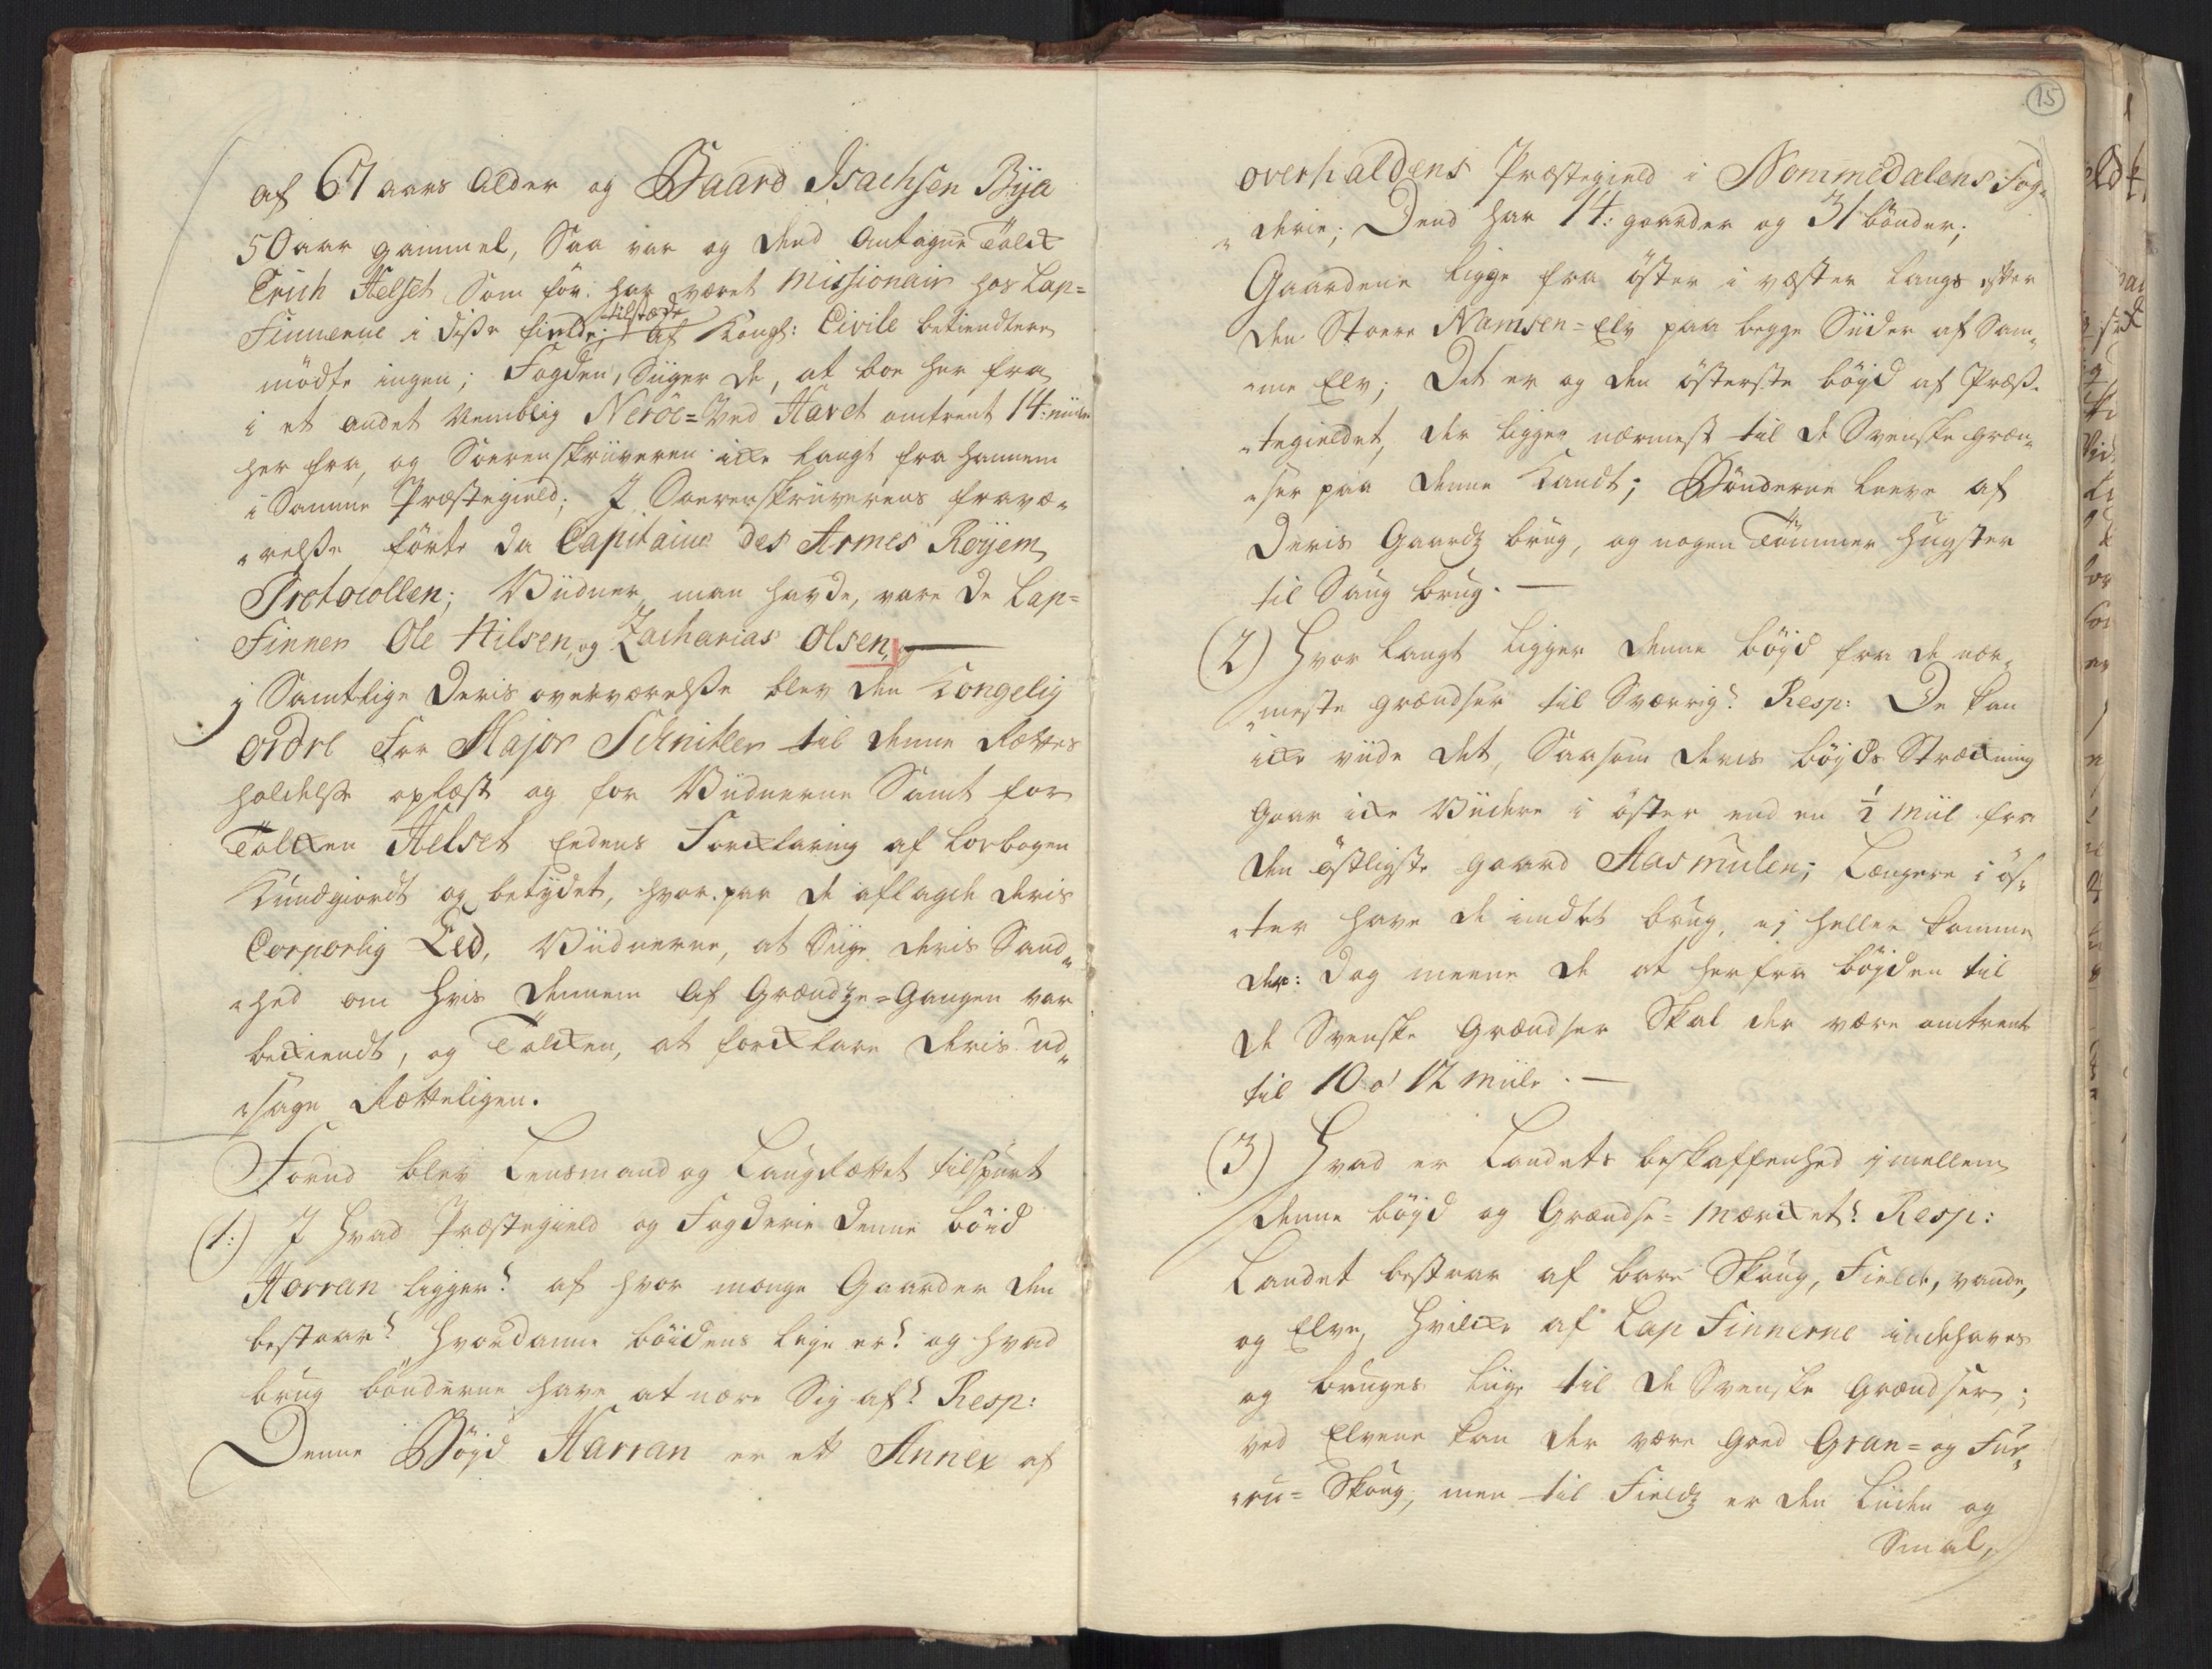 af 67 aars Alder og Baard Isachsen Bye
50 aar gammel, Saa var og dend Antagne Tolck
Erich Helset, Som för har været Missionair hos Lap=
Finnerne i disse fielde; tilstæde Af Kongl: Civile betiendtere
mödte ingen; Fogden, Siiger de, at boe her fra
i et andet Nemblig Neröe= Ved Havet omtrent 14: miile
her fra, og Sorenskriiveren icke langt fra hannem
i Samme Præstegield; I Sorenskriiverens fravæ„
„relsse förte da Capitaine des Armes Röyem
Protocollen; Viidner, man havde, vare de Lap=
Finner Ole Nilsen, og Zacharias Olsen, —
j Samtlige Deris overværelsse blev den Kongelig
ordre for Major Schnitler til denne Rættes
holdelsse oplæst og for Viidnerne Samt for
Tolcken Helset Eedens Forcklaring af Lovbogen
Kundgiordt og betydet, hvor paa de aflagde deris
Corporlig Eed, Viidnerne, at Siige deris Sand„
„hed om hvis dennem Af Grændze=Gangen var
beckiendt, og Tolcken, at forcklare deris ud„
„sagn Rætteligen.
Forud blev Lensmand og Laugrættet tilspurt
(1:) I hvad Præstegield og Fogderie denne böid
Harran ligger? af hvor mange Gaarder den
bestaar? hvordanne böidens leye er? og hvad
brug bönderne have at nære Sig af? Resp:
Denne Böyd Harran er ett Annex af
15
overhaldens Præstegield i Nommedalens Fog„
„derie; Dend har 14: gaarder og 31 bönder;
Gaardene ligge fra öster i væster langs efter
den Stoere Namsen=Elv paa begge Siider af Sam„
„me Elv; Det er og den österste böyd af Præs„
„tegieldet, der ligger nærmest til de Svenske græn„
„ser paa denne Kandt; Bönderne leeve af
Deris Gaardz brug, og nogen Tömmer hugster
til Saug brug. —
(2) Hvor langt ligger denne böyd fra de nær„
„meste grændser til Sværrig? Resp: De kan
icke viide det, Saasom deris böyds Strækning
gaar icke Viidere i öster end en ½ miil fra
den östligste gaard Aasmulen; Længere i ös„
„ter have de indtet brug, ej heller komme
der: dog meene de at herfra böyden til
de Svenske Grændser Skal der være omtrent
til 10 a' 12 miile. —
(3) Hvad er Landets beskaffenhed jmellem
denne böyd og Grændse=mærcket? Resp:
Landet bestaar af bare Skoug, Fielde, vande,
og Elve, hvilcke af Lap Finnerne indehaves
og bruges liige til de Svenske Grændser;
ved Elvene kan der være goed Gran= og Fur„
„ru= Skoug, men til Fieldz er den liiden og
Smal,